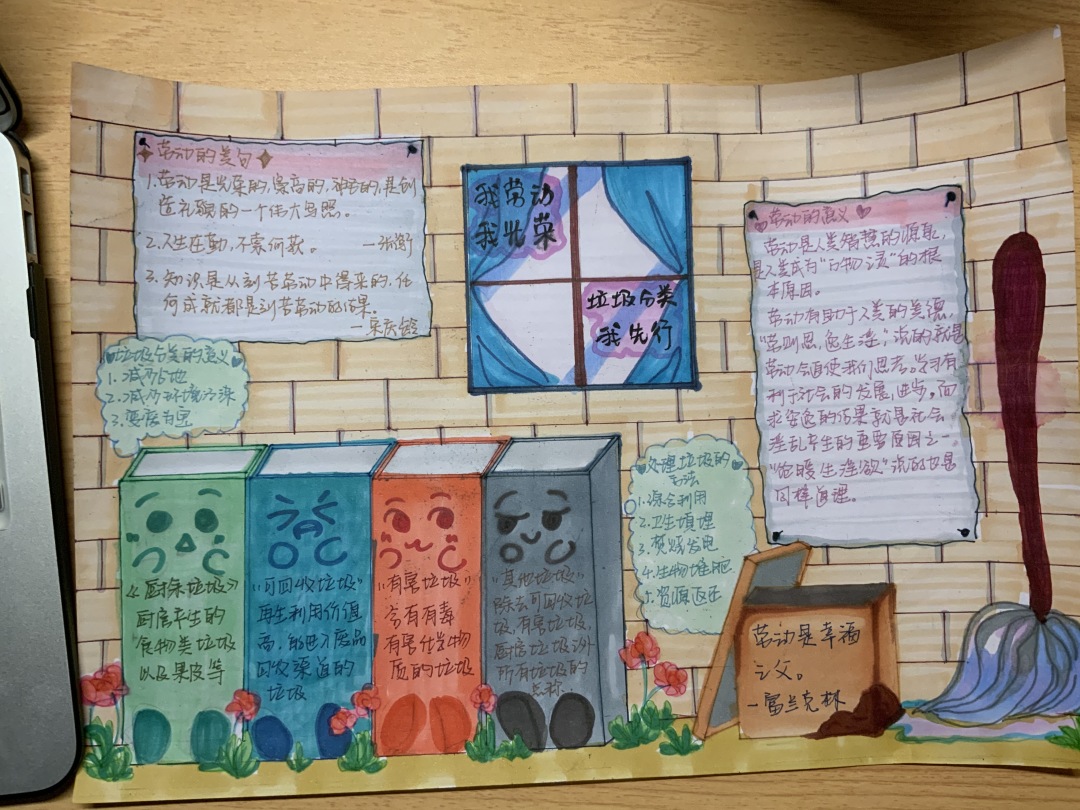 劳动的美句
1. 劳动是光荣的,崇高的,神奇的,是创
造礼砚的一个伟大鸟照。
2. 人生在勤,不索何获。 —张衡
3. 知识是从刻苦劳动中得来的,任
何成就都是刻苦劳动的结果。
—宋庆龄
我劳动
我光荣
垃圾分类
我先行
劳动的意义
劳动是人类智慧的源泉,
是人类成为“万物之灵”的根
本原因。
劳动有助于人类的美德,
“劳则思,逸生淫”说的就是
劳动会迫使我们思考。学习有
利于社会的发展,进步,而
求安逸的结果就是社会
淫乱产生的重要原因之一。
“饱暖生淫欲”说的也是
同样道理。
垃圾分类的意义
1. 减少占地
2. 减少环境污染
3. 变废为宝
处理垃圾的
方法
1. 综合利用
2. 卫生填埋
3. 焚烧发电
4. 生物堆肥
5. 资源返还
《厨余垃圾》
厨房产生的
食物类垃圾
以及果皮等
“可回收垃圾”
再生利用价值
高,能进入废品
回收渠道的
垃圾
“有害垃圾”
含有有毒
有害化学物
质的垃圾
“其他垃圾”
除去可回收垃
圾,有害垃圾,
厨房垃圾以外
所有垃圾的
总称.
劳动是幸福
之父。
—富兰克林